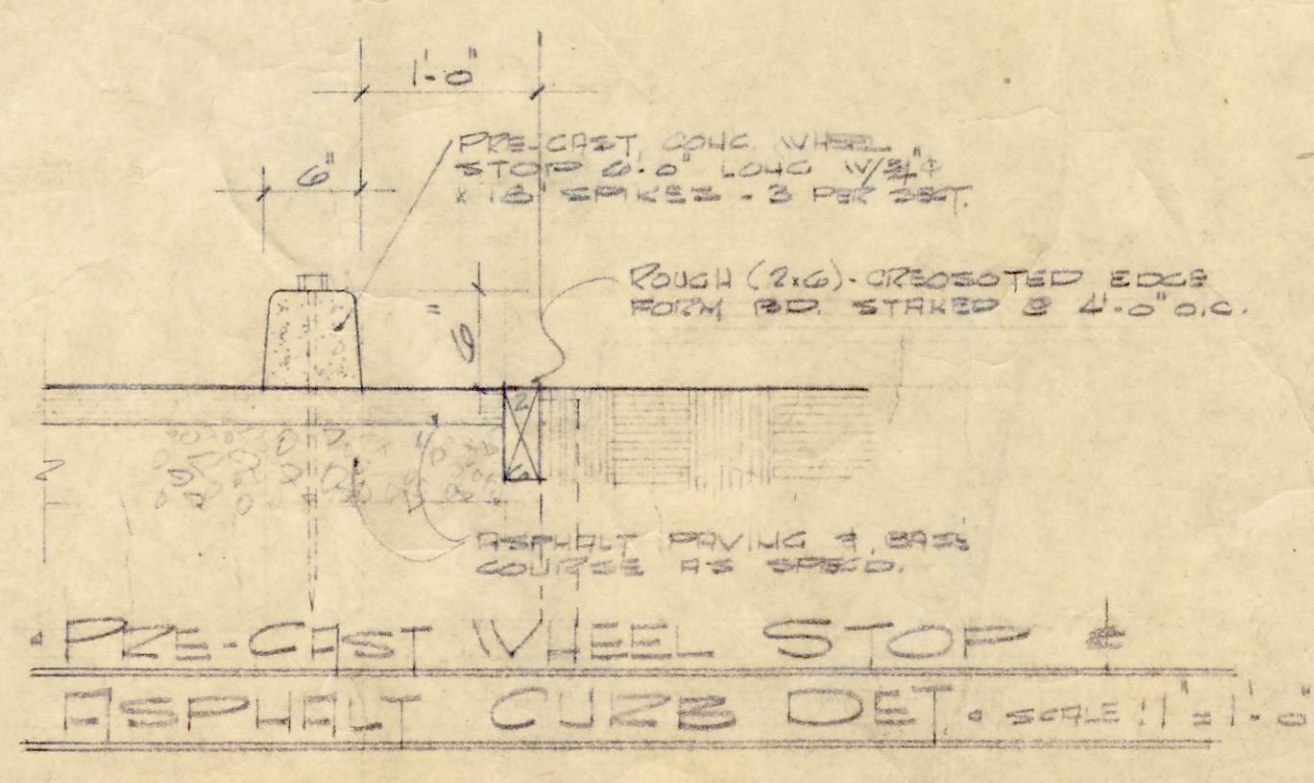 1'-0"
6"
PRE-CAST, CONC. WHEEL
STOP 6'-0" LONG W/ 3/4"φ
x 18" SPIKES - 3 PER SET.
ROUGH (2x6) - CREOSOTED EDGE
FORM BD. STAKED @ 4'-0" O.C.
6"
2
6
ASPHALT PAVING & BASE
COURSE AS SPEC'D.
PRE-CAST WHEEL STOP &
ASPHALT CURB DET. • SCALE: 1" = 1'-0"